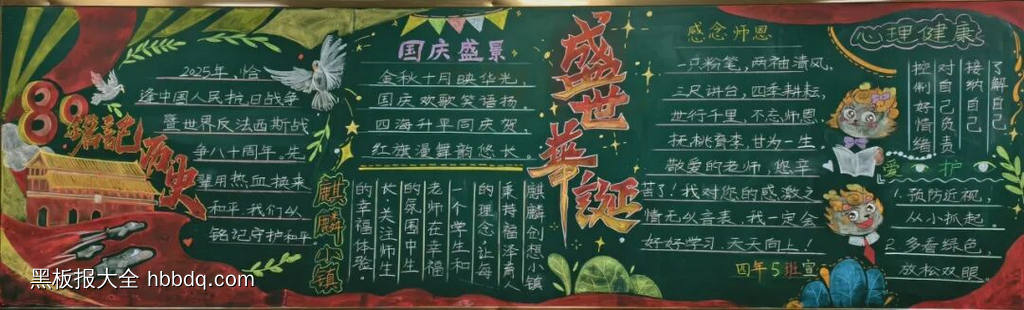 80
铭记历史
2025年，恰
逢中国人民抗日战争
暨世界反法西斯战
争八十周年。先
辈用热血换来
和平，我们以
铭记守护和平
麒麟小镇
国庆盛景
金秋十月映华光，
国庆欢歌笑语扬。
四海升平同庆贺，
红旗漫舞韵悠长。
麒麟创想小镇
秉持福泽育人
的理念，让每
一个学生和
老师在幸福
的氛围中生
长，关注师生
的幸福体验。
盛世華誕
感念师恩
一只粉笔，两袖清风，
三尺讲台，四季耕耘，
世行千里，不忘师恩
抚桃育李，甘为一生
敬爱的老师，您辛
苦了！我对您的感激之
情无以言表，我一定会
好好学习，天天向上！
四年5班宣
心理健康
了解自己
接纳自己
对自己负责
控制好情绪
爱护
1.预防近视，
从小抓起。
2.多看绿色，
放松双眼。
黑板报大全 hbbdq.com